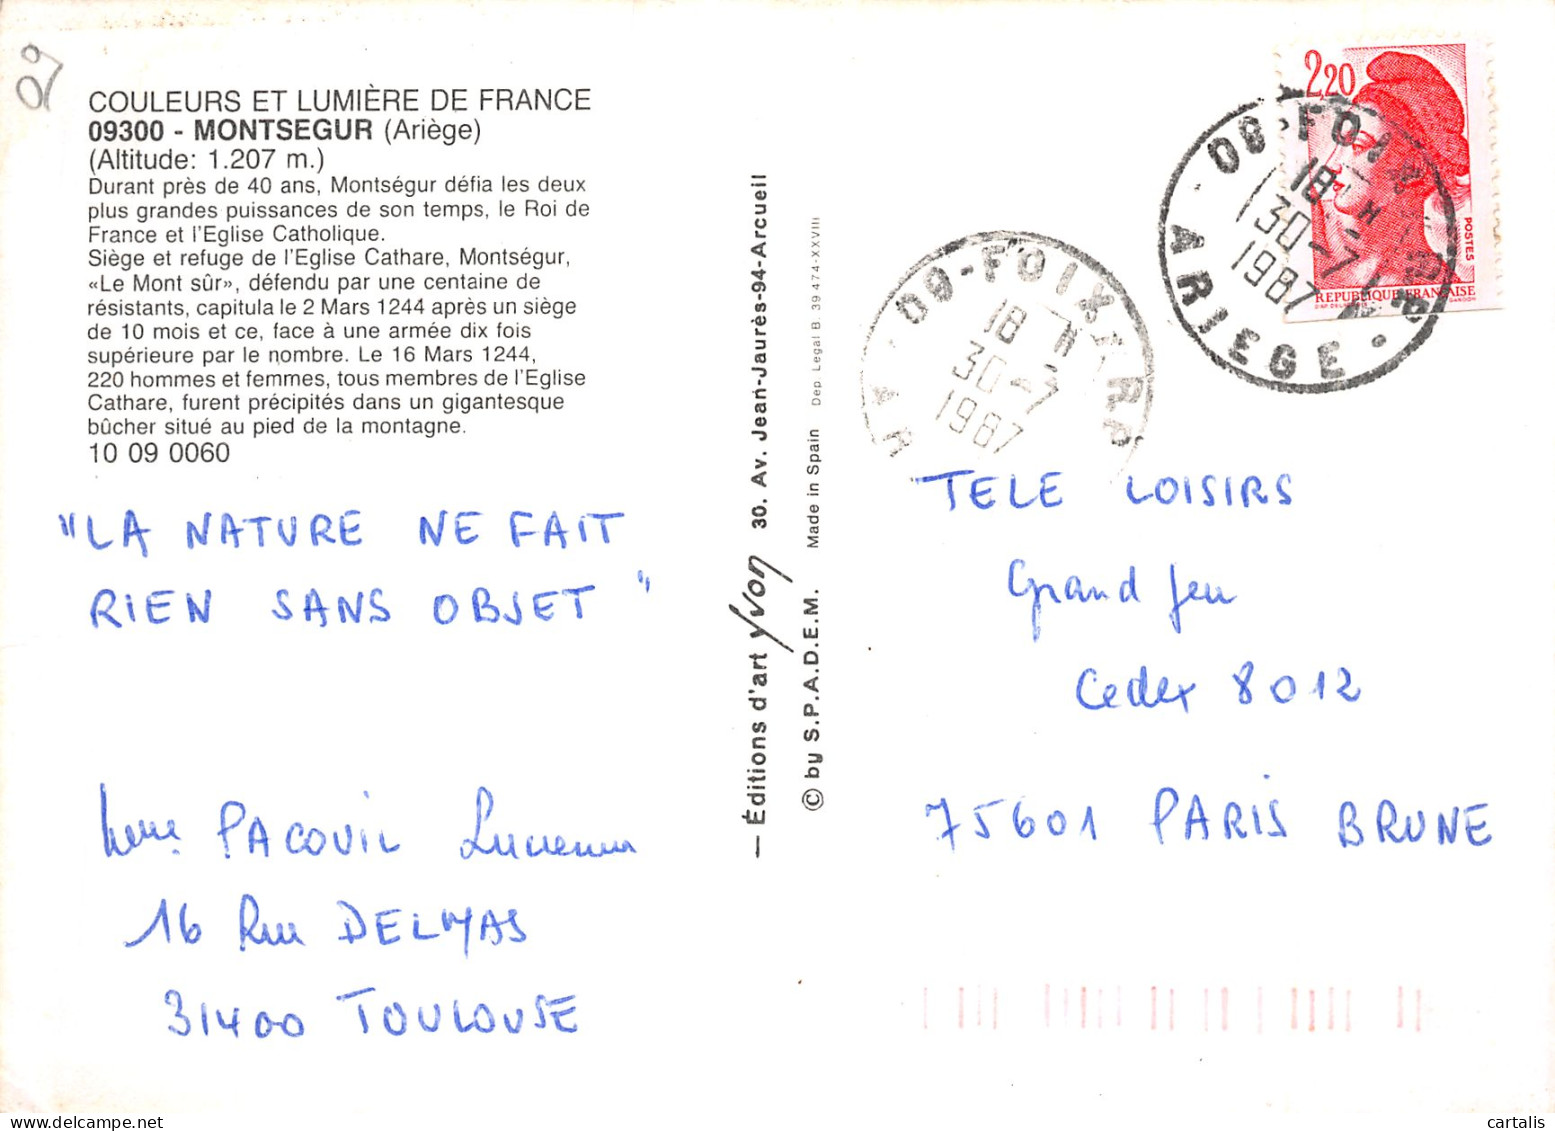 09
COULEURS ET LUMIÈRE DE FRANCE
09300 - MONTSEGUR (Ariège)
(Altitude: 1.207 m.)
Durant près de 40 ans, Montségur défia les deux
plus grandes puissances de son temps, le Roi de
France et l'Eglise Catholique.
Siège et refuge de l'Eglise Cathare, Montségur,
«Le Mont sûr», défendu par une centaine de
résistants, capitula le 2 Mars 1244 après un siège
de 10 mois et ce, face à une armée dix fois
supérieure par le nombre. Le 16 Mars 1244,
220 hommes et femmes, tous membres de l'Eglise
Cathare, furent précipités dans un gigantesque
bûcher situé au pied de la montagne.
10 09 0060
"LA NATURE NE FAIT
RIEN SANS OBJET"
Mme PACOUIL Lucienne
16 Rue DELMAS
31400 TOULOUSE
— Éditions d'art Yvon 30. Av. Jean-Jaurès-94-Arcueil
© by S.P.A.D.E.M. Made in Spain Dep. Legal B. 39.474-XXVIII
09-FOIX R.P.
18 H
30-7
1987
AR
2,20
POSTES
REPUBLIQUE FRANÇAISE
GANDON
09-FOIX R.P.
18 H
30-7
1987
ARIEGE
TELE LOISIRS
Grand Jeu
Cedex 8012
75601 PARIS BRUNE
cartalis